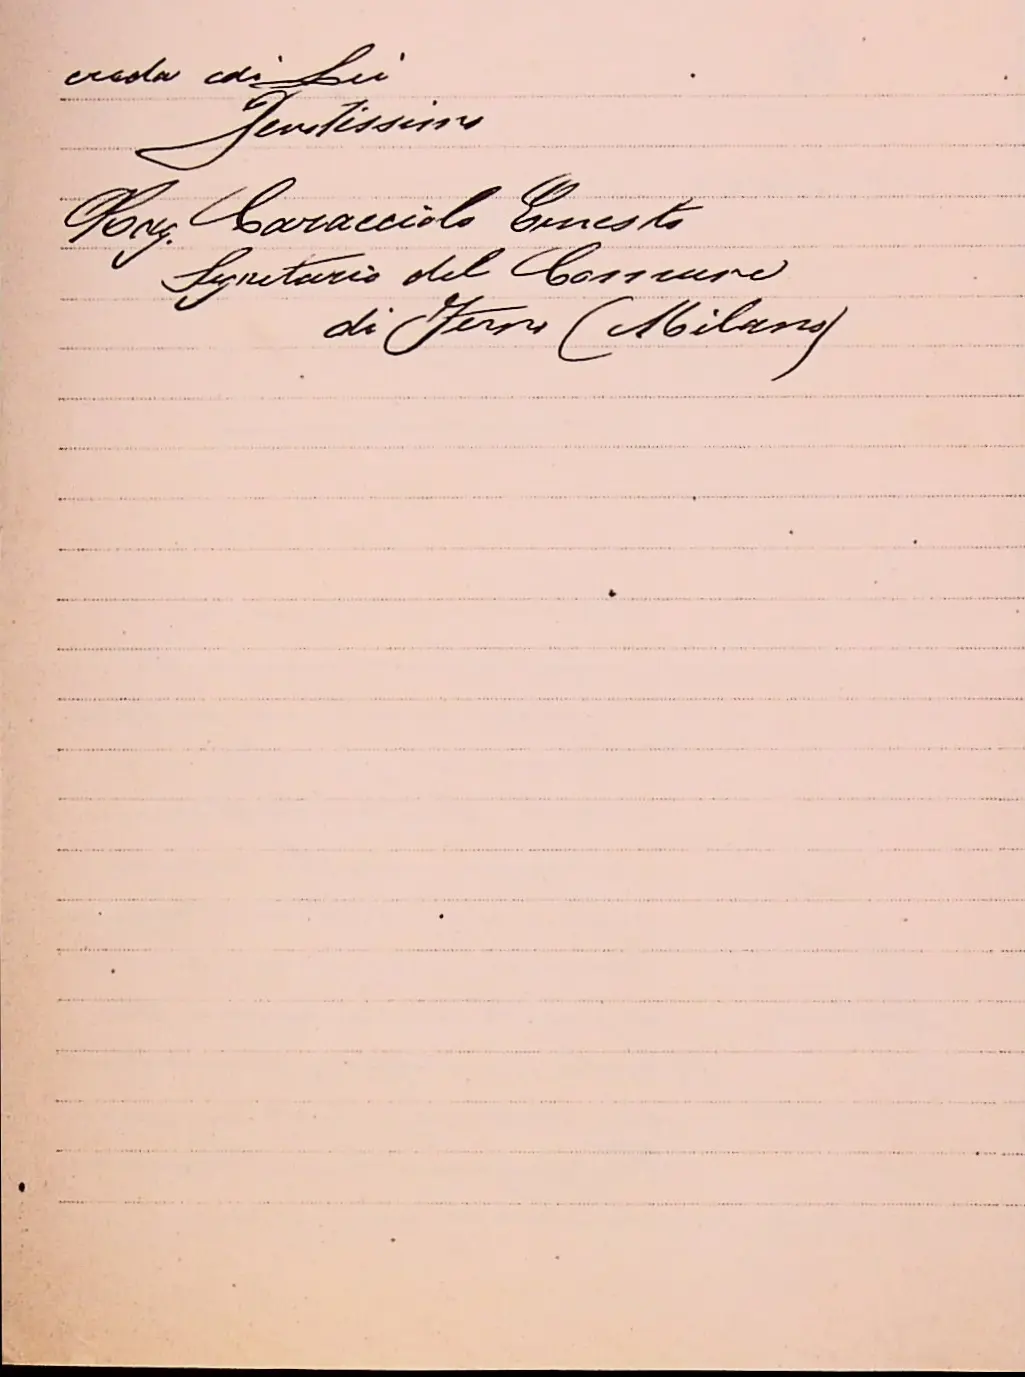 creda di Lei
Devotissimo
Rag. Caracciolo Ernesto
Segretario del Comune
di Ferno (Milano)